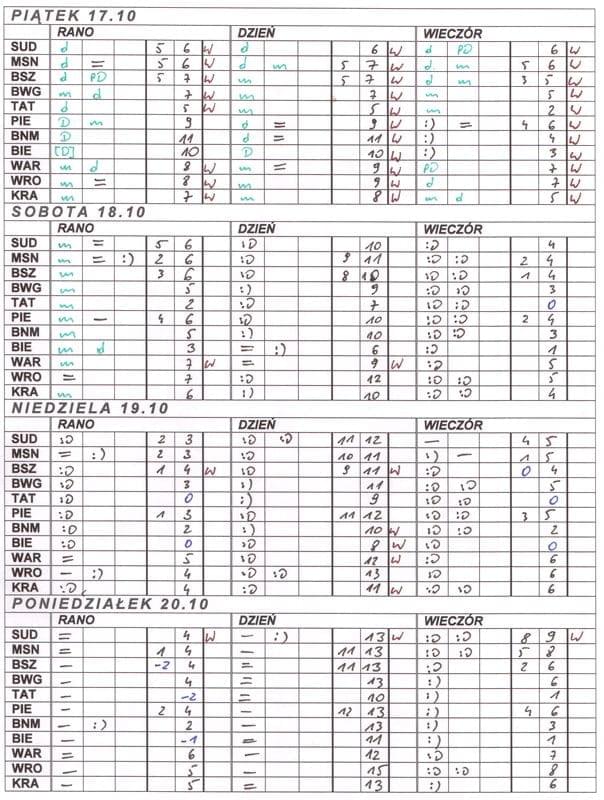 PIĄTEK 17.10
RANO DZIEŃ WIECZÓR
SUD d 5 6 W d 6 W d PD 6 W
MSN d = 5 6 W d m 5 7 W d m 5 6 W
BSZ d PD 5 7 W m 5 7 W d m 3 5 W
BWG m d 7 W m 7 W m 5 W
TAT d 5 W m 5 W m 2 W
PIE D m 9 d = 9 W :) = 4 6 W
BNM D 11 d = 11 W :) 4 W
BIE [D] 10 D 10 W :) 3 W
WAR m d 8 W m = 9 W PD 7 W
WRO m = 8 W m 9 W d 7 W
KRA m 7 W m 8 W m d 5 W
SOBOTA 18.10
RANO DZIEŃ WIECZÓR
SUD m = 5 6 :D 10 :D 4
MSN m = :) 2 6 :D 9 11 :D :D 2 4
BSZ m 3 6 :D 8 10 :D :D 1 4
BWG m 5 :) 9 :D :D 3
TAT m 2 :D 7 :D :D 0
PIE m – 4 6 :D 10 :D :D 2 4
BNM m 5 :) 10 :D :D 3
BIE m d 3 = :) 6 :D 1
WAR m 7 W = 9 W :D 5
WRO = 7 :D 12 :D :D 5
KRA m 6 :) 10 :D :D 4
NIEDZIELA 19.10
RANO DZIEŃ WIECZÓR
SUD :D 2 3 :D :D 11 12 – 4 5
MSN = :) 2 3 :D 10 11 :) – 1 5
BSZ :D 1 4 W :D 9 11 W :D 0 4
BWG :D 3 :) 11 :D :D 5
TAT :D 0 :) 9 :D :D 0
PIE :D 1 3 :D 11 12 :D :D 3 5
BNM :D 2 :) 10 W :D :D 2
BIE :D 0 :D 8 W :D 0
WAR = 5 :D 12 W :D 6
WRO – :) 4 :D :D 13 :D 6
KRA :D 4 :D 11 W :D :D 6
PONIEDZIAŁEK 20.10
RANO DZIEŃ WIECZÓR
SUD = 4 W – :) 13 W :D :D 8 9 W
MSN = 1 4 – 11 13 :D :D 5 8
BSZ – -2 4 = 11 13 :D 2 6
BWG – 4 = 13 :) 6
TAT – -2 = 10 :) 1
PIE – 2 4 – 12 13 :) 4 6
BNM – :) 2 – 13 :) 3
BIE – -1 = 11 :) 1
WAR = 6 – 12 :D 7
WRO – 5 – 15 :D :D 8
KRA – 5 = 13 :) 6